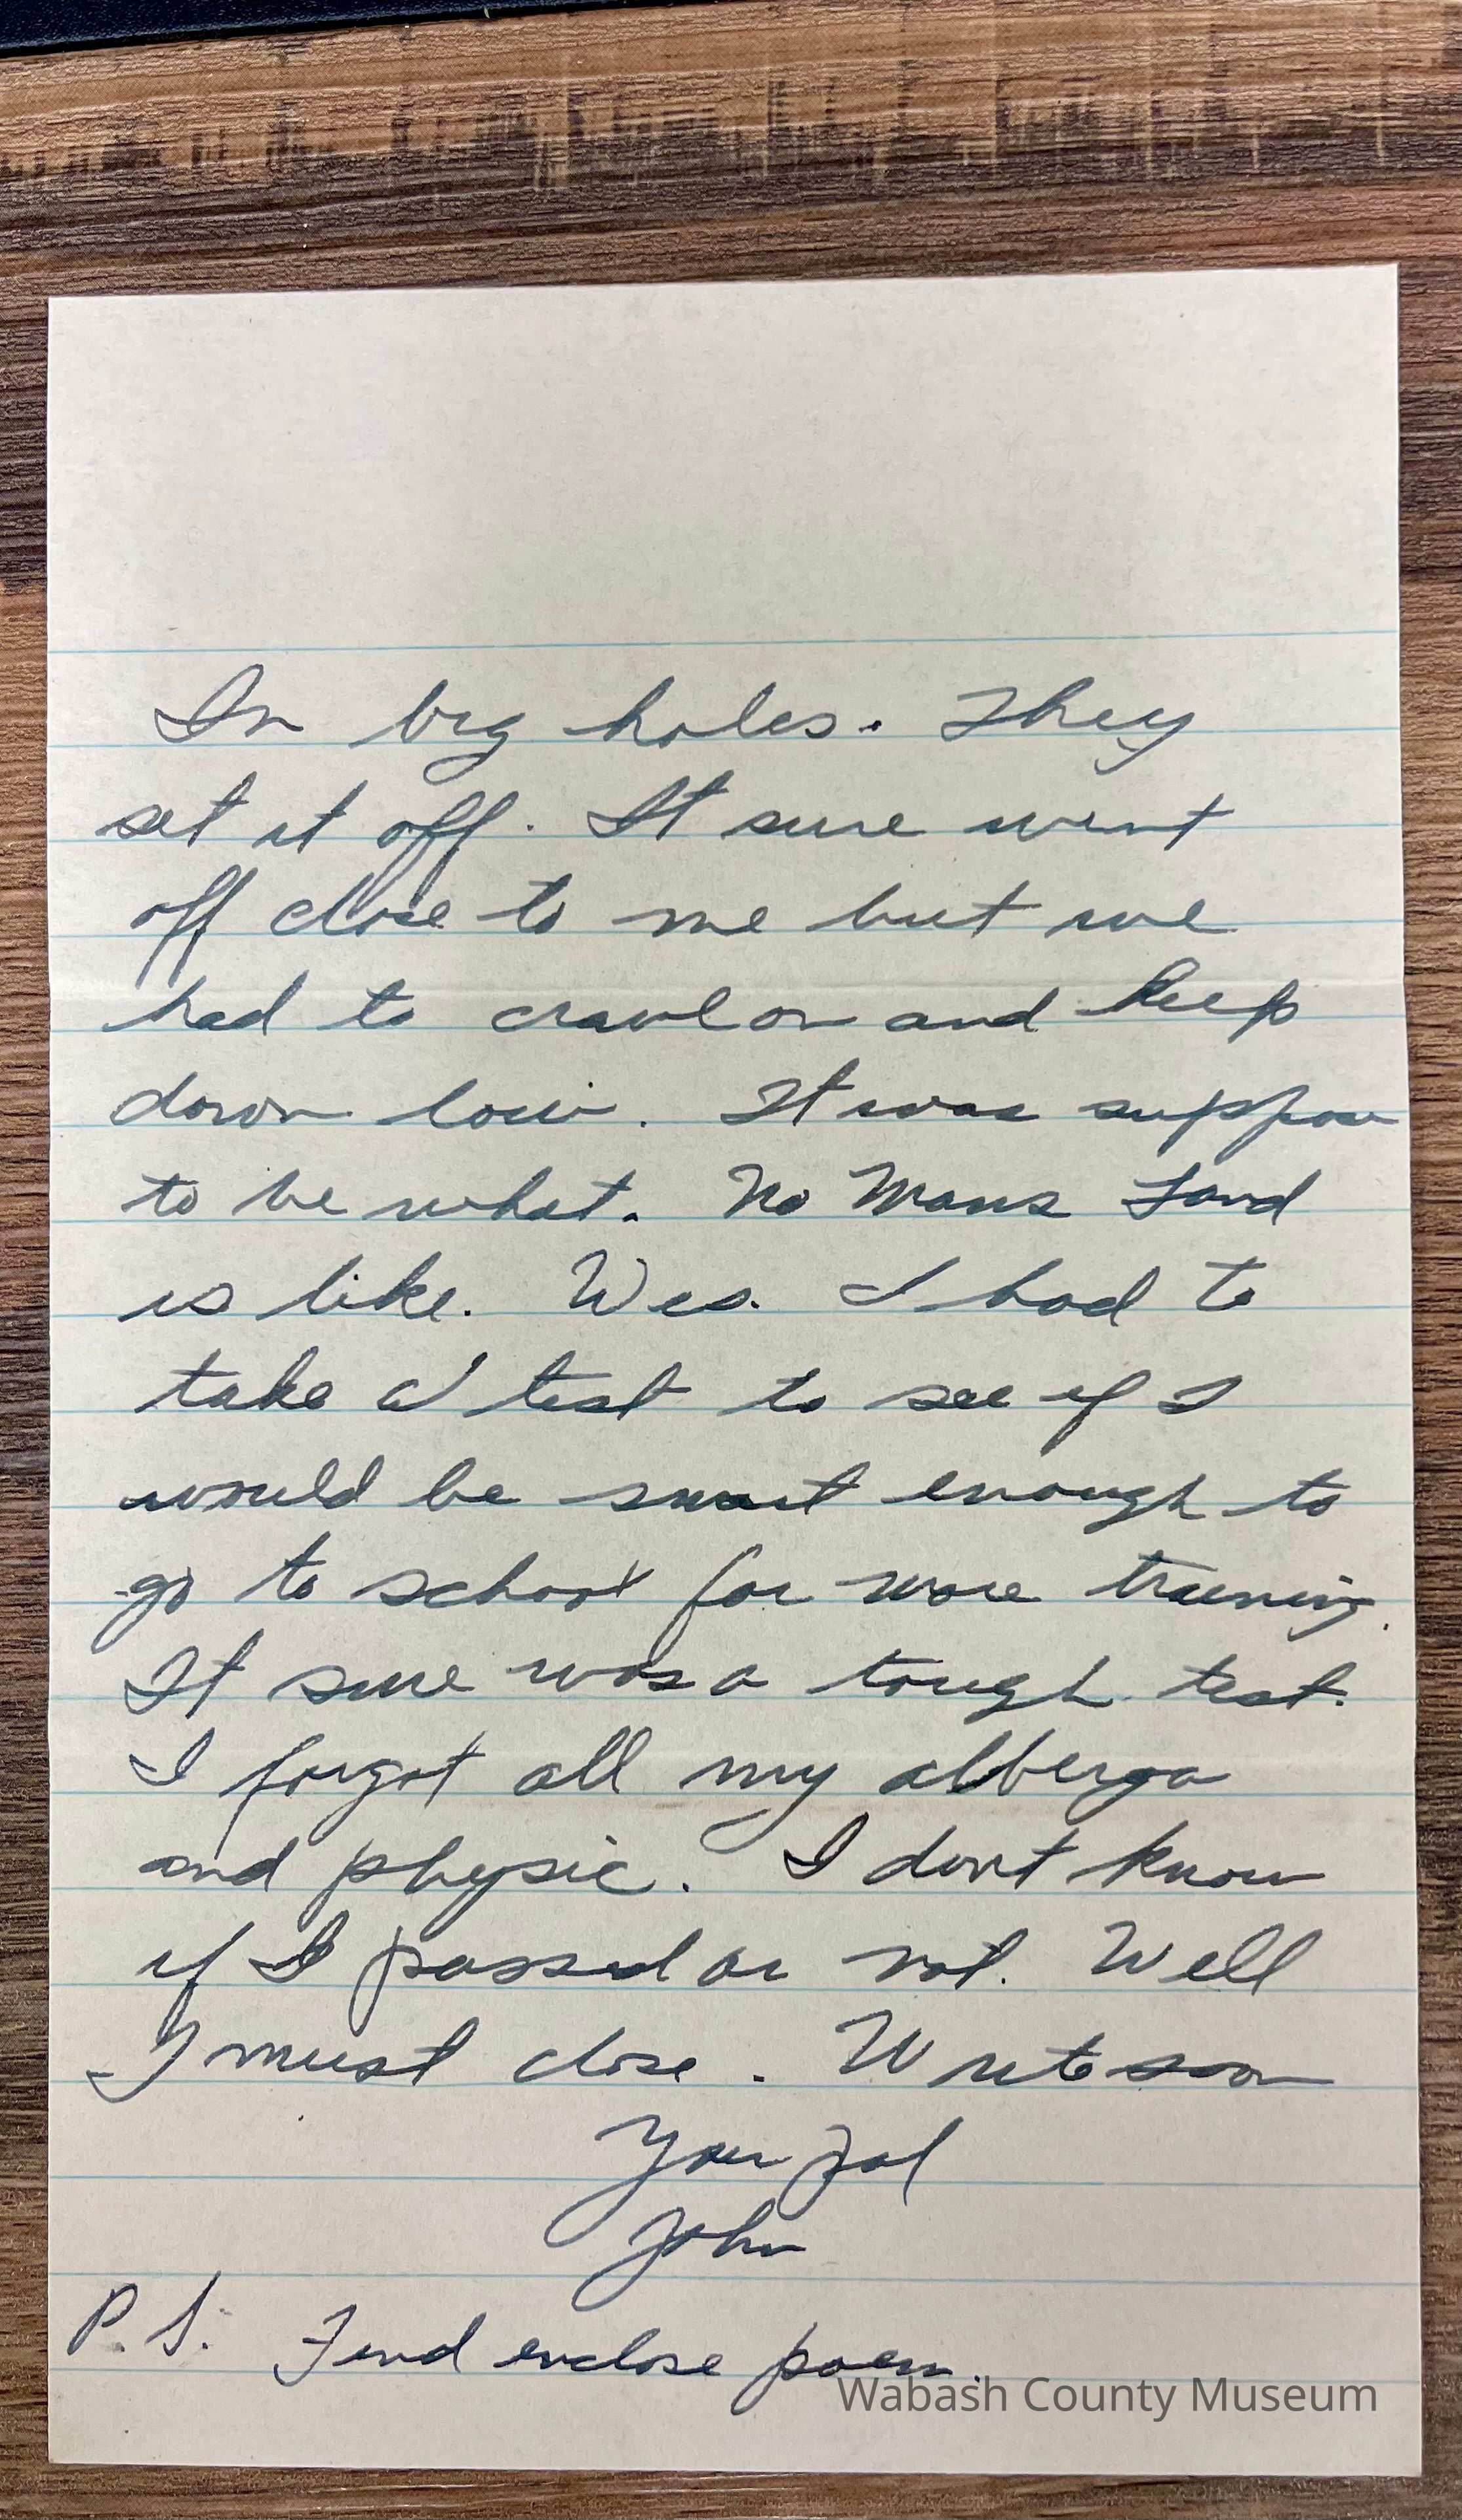 In big holes. They
set it off. It sure went
off close to me but we
had to crawl on and keep
down low. It was suppose
to be what. No Mans Land
is like. Wes. I had to
take a test to see if I
would be smart enough to
go to school for more training.
It sure was a tough test.
I forgot all my alberga
and physic. I dont know
if I passed or not. Well
I must close. Write soon
Your Pal
John
P.S. Find enclose poem.
Wabash County Museum